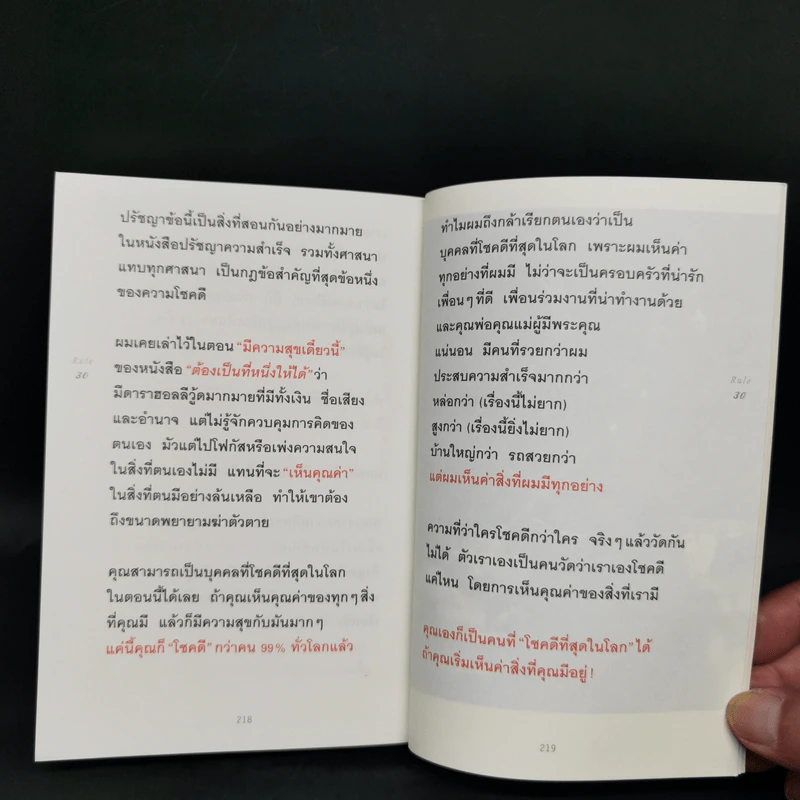 ปรัชญาข้อนี้เป็นสิ่งที่สอนกันอย่างมากมาย
ในหนังสือปรัชญาความสำเร็จ รวมทั้งศาสนา
แทบทุกศาสนา เป็นกฎข้อสำคัญที่สุดข้อหนึ่ง
ของความโชคดี
ผมเคยเล่าไว้ในตอน "มีความสุขเดี๋ยวนี้"
ของหนังสือ "ต้องเป็นที่หนึ่งให้ได้" ว่า
มีดาราฮอลลีวู้ดมากมายที่มีทั้งเงิน ชื่อเสียง
และอำนาจ แต่ไม่รู้จักควบคุมการคิดของ
ตนเอง มัวแต่ไปโฟกัสหรือเพ่งความสนใจ
ในสิ่งที่ตนเองไม่มี แทนที่จะ "เห็นคุณค่า"
ในสิ่งที่ตนมีอย่างล้นเหลือ ทำให้เขาต้อง
ถึงขนาดพยายามฆ่าตัวตาย
คุณสามารถเป็นบุคคลที่โชคดีที่สุดในโลก
ในตอนนี้ได้เลย ถ้าคุณเห็นคุณค่าของทุกๆ สิ่ง
ที่คุณมี แล้วก็มีความสุขกับมันมากๆ
แค่นี้คุณก็ "โชคดี" กว่าคน 99% ทั่วโลกแล้ว
Rule
30
218
ทำไมผมถึงกล้าเรียกตนเองว่าเป็น
บุคคลที่โชคดีที่สุดในโลก เพราะผมเห็นค่า
ทุกอย่างที่ผมมี ไม่ว่าจะเป็นครอบครัวที่น่ารัก
เพื่อนๆ ที่ดี เพื่อนร่วมงานที่น่าทำงานด้วย
และคุณพ่อคุณแม่ผู้มีพระคุณ
แน่นอน มีคนที่รวยกว่าผม
ประสบความสำเร็จมากกว่า
หล่อกว่า (เรื่องนี้ไม่ยาก)
สูงกว่า (เรื่องนี้ยิ่งไม่ยาก)
บ้านใหญ่กว่า รถสวยกว่า
แต่ผมเห็นค่าสิ่งที่ผมมีทุกอย่าง
ความที่ว่าใครโชคดีกว่าใคร จริงๆ แล้ววัดกัน
ไม่ได้ ตัวเราเองเป็นคนวัดว่าเราเองโชคดี
แค่ไหน โดยการเห็นคุณค่าของสิ่งที่เรามี
คุณเองก็เป็นคนที่ "โชคดีที่สุดในโลก" ได้
ถ้าคุณเริ่มเห็นค่าสิ่งที่คุณมีอยู่!
Rule
30
219